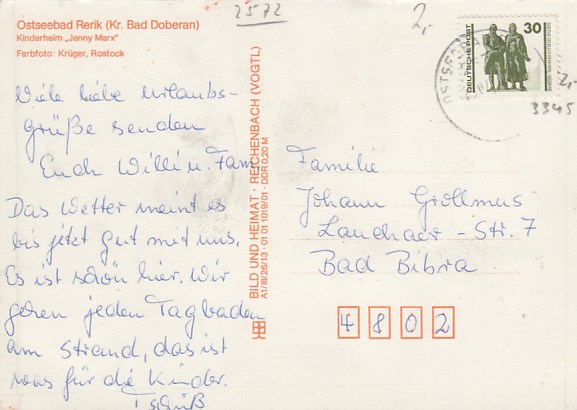 2572
2,-
Ostseebad Rerik (Kr. Bad Doberan)
Kinderheim „Jenny Marx"
Farbfoto: Krüger, Rostock
30
DEUTSCHE POST
OSTSEEBAD
2,-
3345
Viele liebe Urlaubs-
grüße senden
Euch Willi u. Fam.
Das Wetter meint es
bis jetzt gut mit uns.
Es ist schön hier. Wir
gehen jeden Tag baden
am Strand, das ist
was für die Kinder.
Tschüß
BILD UND HEIMAT · REICHENBACH (VOGTL)
A1/III/26/13 · 01 01 1019/01 · DDR 0,20 M
Familie
Johann Grollmus
Str. 7
Bad Bibra
4802